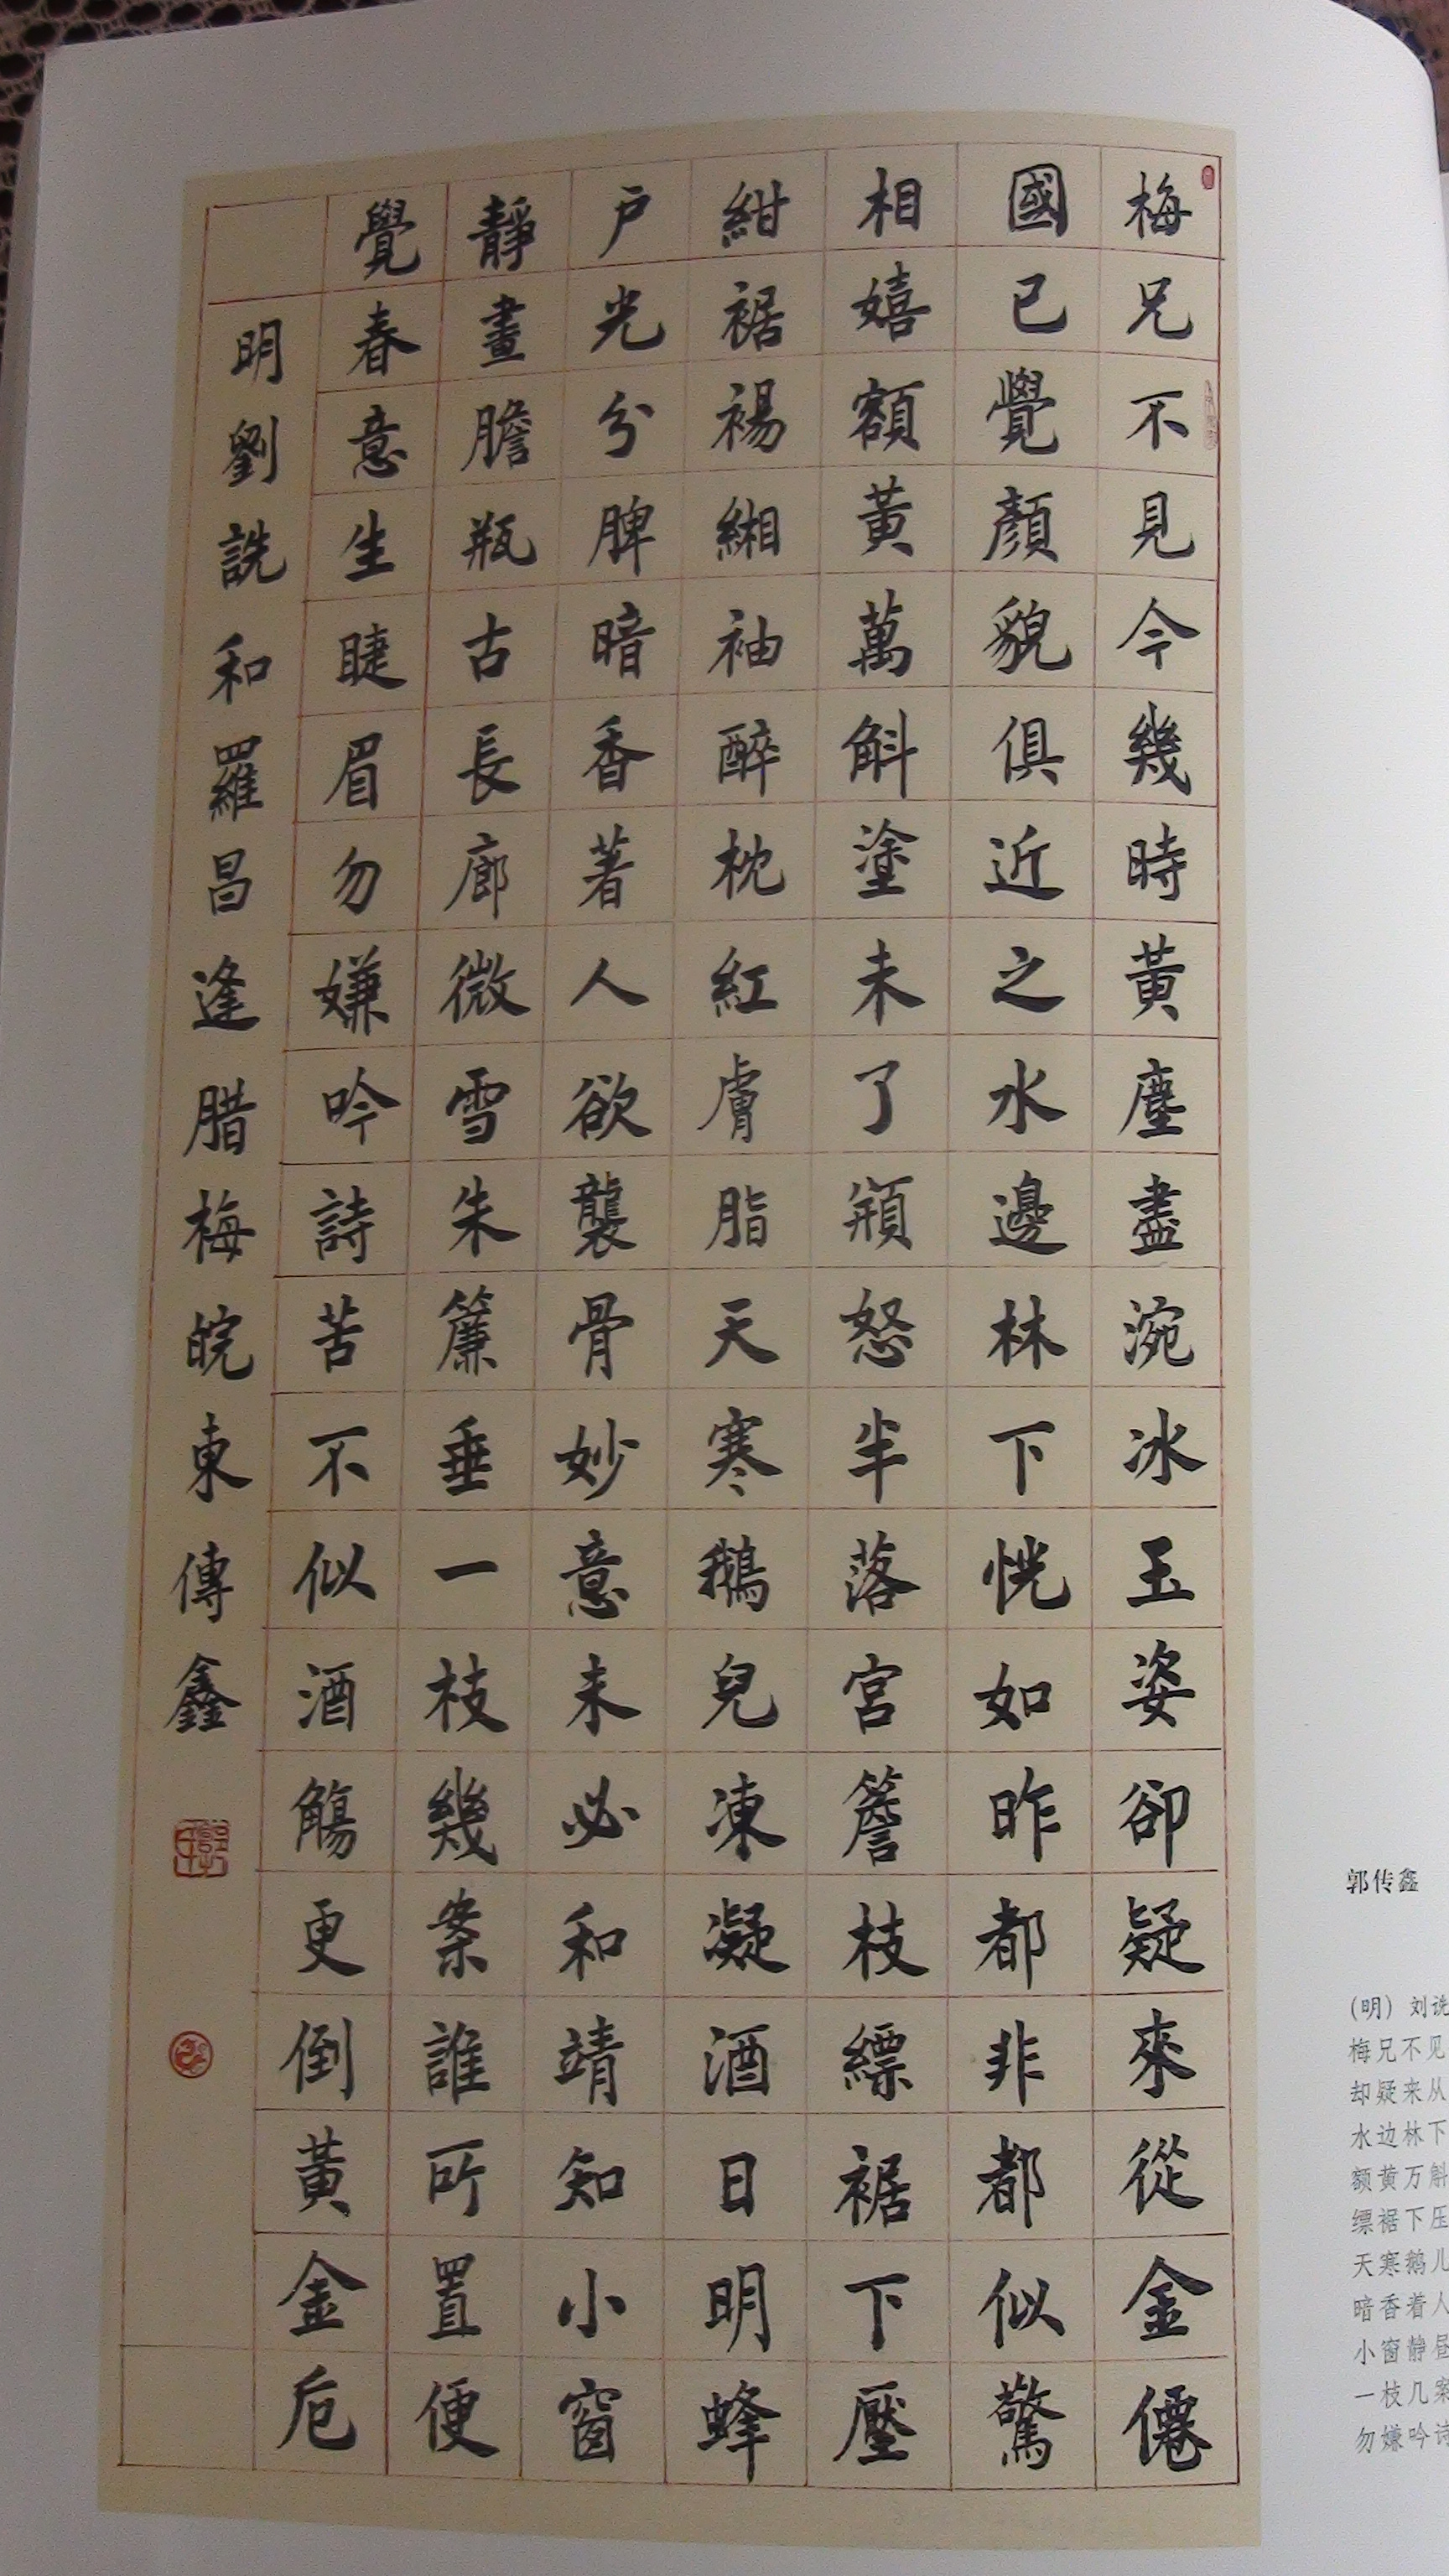 梅兄不見今幾時黃塵盡涴冰玉姿卻疑來從金僊
國已覺顏貌俱近之水邊林下恍如昨都非都似驚
相嬉額黃萬斛塗未了頩怒半落宮簷枝縹裾下壓
紺裾裼緗袖醉枕紅膚脂天寒鵝兒凍凝酒日明蜂
戶光分脾暗香著人欲襲骨妙意未必和靖知小窗
靜晝膽瓶古長廊微雪朱簾垂一枝幾案誰所置便
覺春意生睫眉勿嫌吟詩苦不似酒觴更倒黃金卮
明劉詵和羅昌逢腊梅皖東傳鑫
郭传鑫
(明) 刘诜
梅兄不见
却疑来从
水边林下
额黄万斛
缥裾下压
天寒鹅儿
暗香着人
小窗静昼
一枝几案
勿嫌吟诗